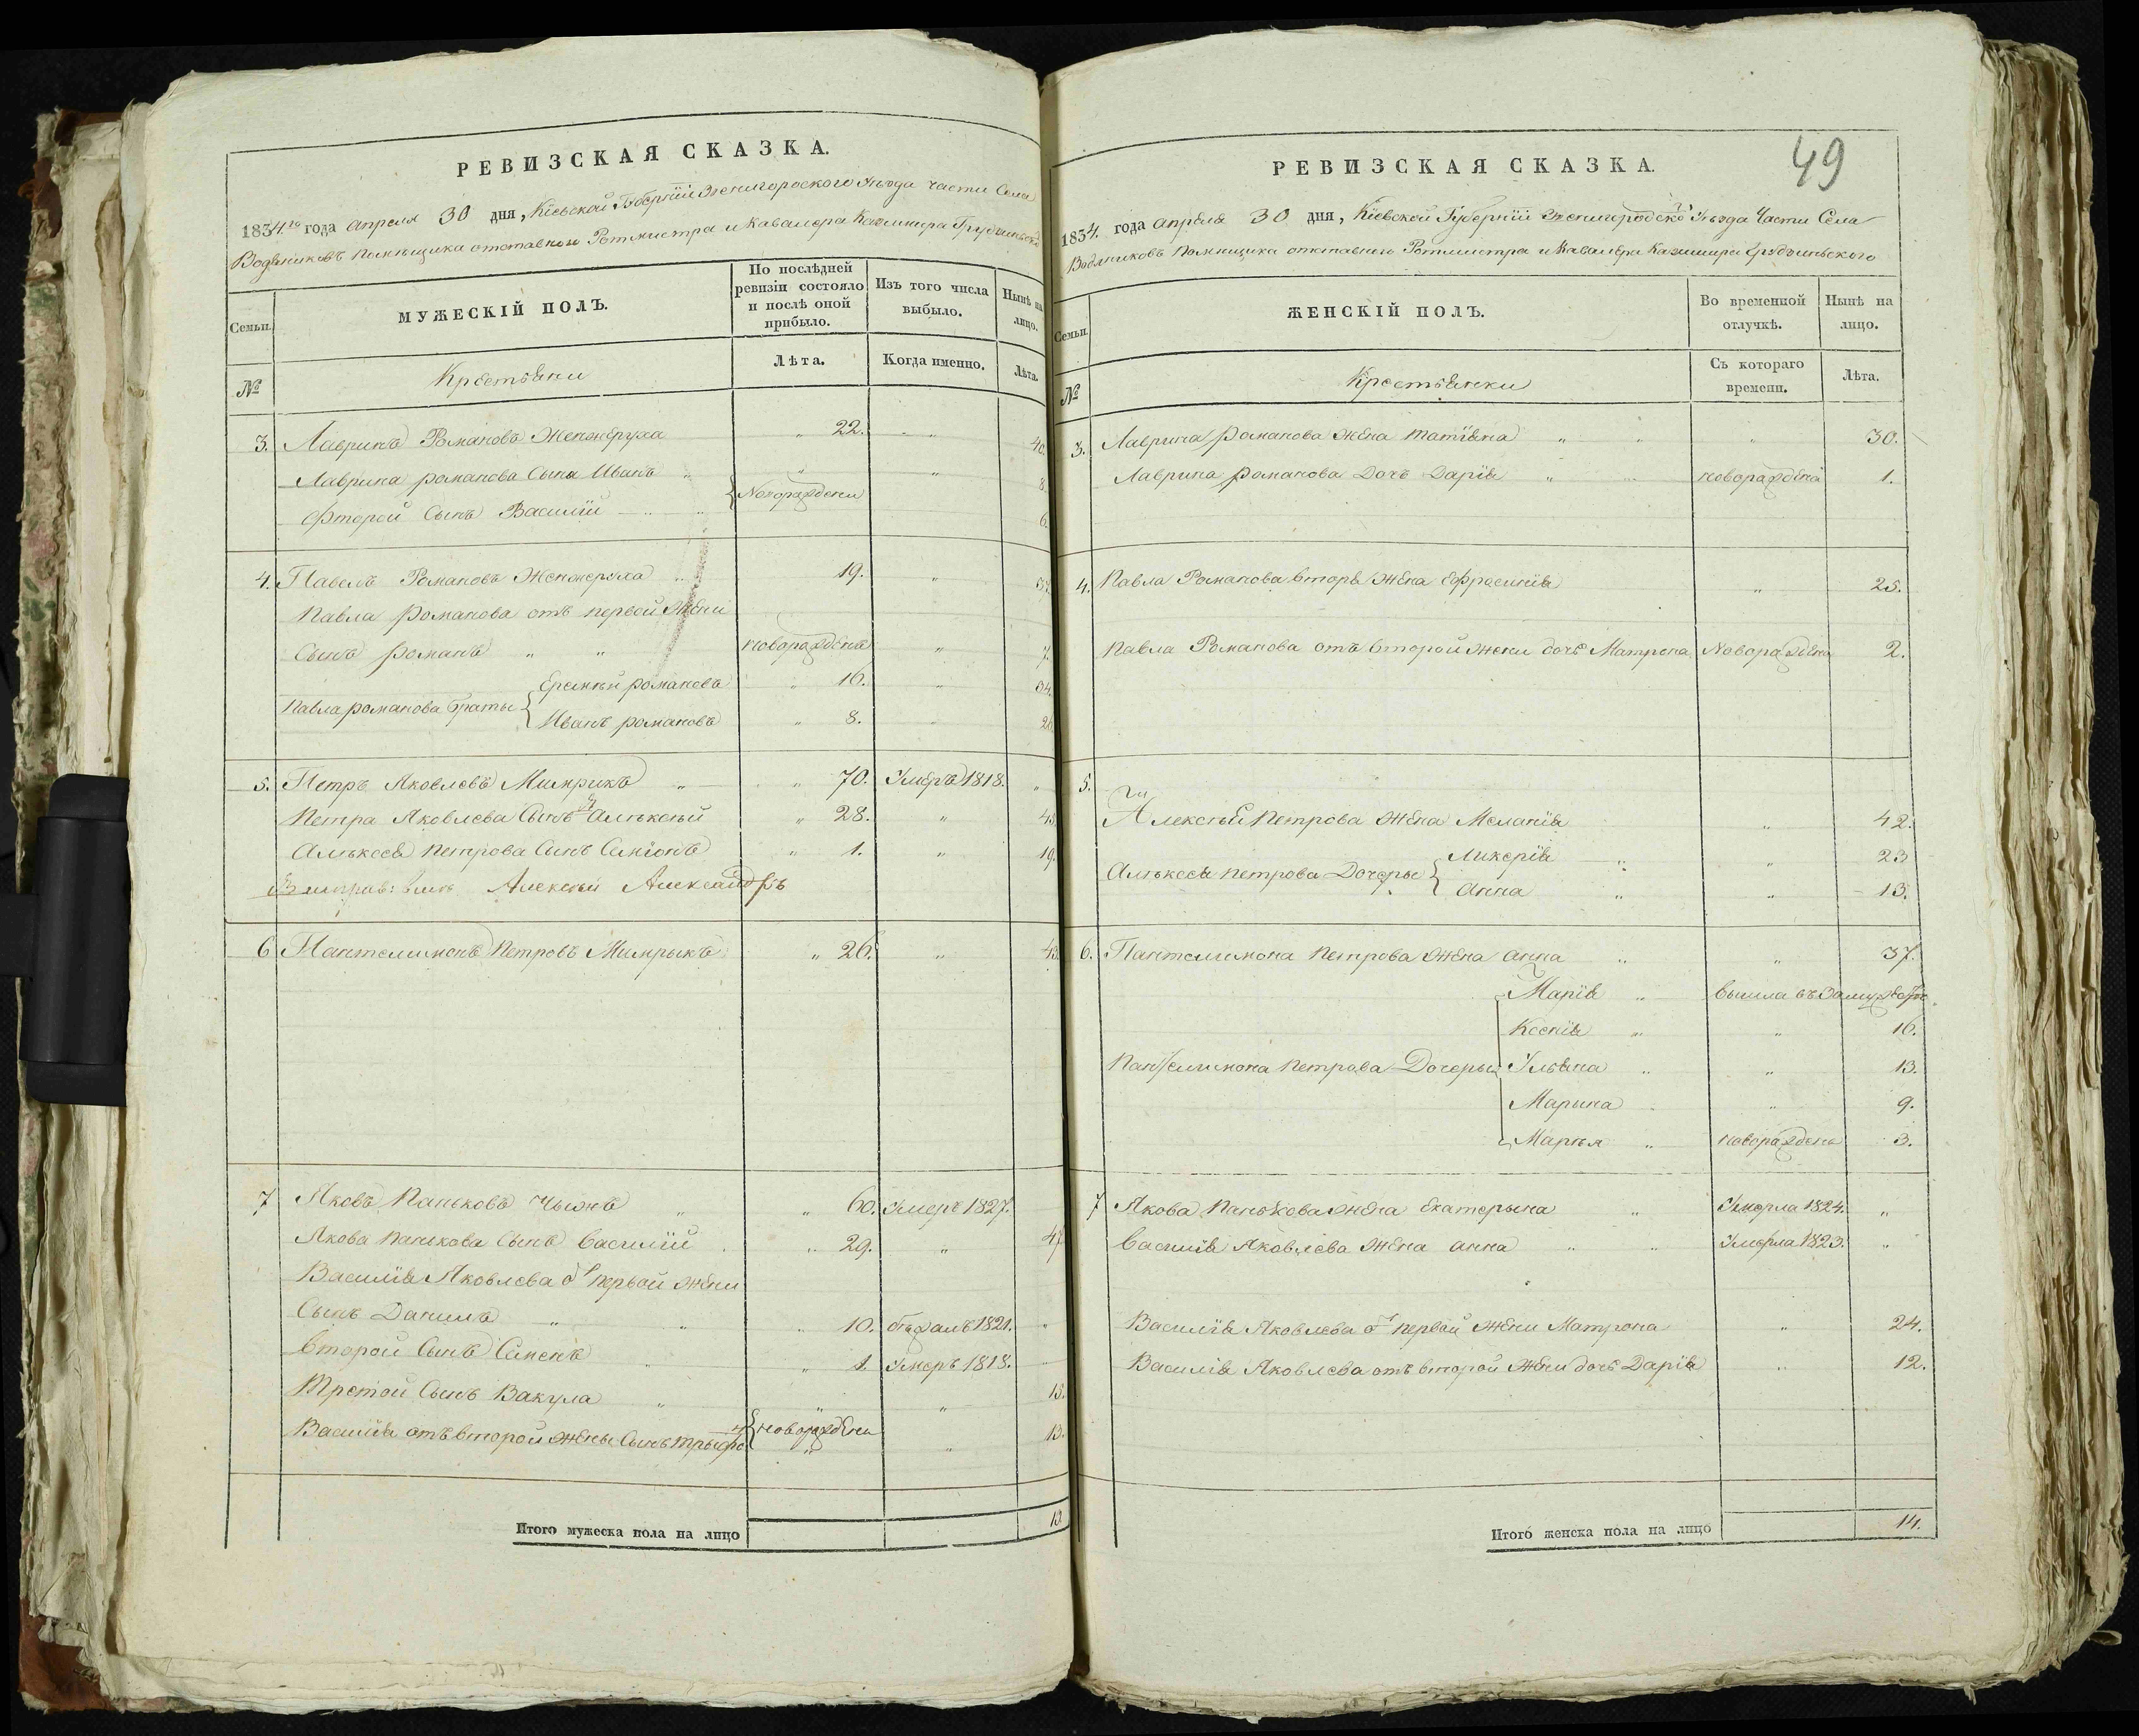 РЕВИЗСКАЯ СКАЗКА.
1834.го года апреля 30 дня, Кіевской Губерніи Звенигородского Уѣзда части Села
Водяниковъ Помѣщика отставного Ротмистра и Кавалера Казимира Грудзиньского
Семьи.
МУЖЕСКІЙ ПОЛЪ.
По послѣдней ревизіи состояло и послѣ оной прибыло.
Изъ того числа выбыло.
Нынѣ на лицо.
№
Крестьяни
Лѣта.
Когда именно.
Лѣта.
3. Лавринъ Романовъ " 22. " 40.
Лаврина романова Сынъ Иванъ " " " 8.
Фторой Сынъ Василій " Новорождени 6.
4. Павелъ Романовъ " 19. " 37.
Павла Романова отъ первой жени
Сынъ романъ " " новорожденъ " 7.
Павла романова браты Еремѣй романовъ " 16. " 34.
Иванъ романовъ " 8. " 26.
5. Петръ Яковлевъ Мимрикъ " " 70. Умеръ 1818. "
Петра Яковлева Сынъ Алѣксѣй " 28. "
Алѣксея Петрова Сынъ Симіонъ " 1. " 19.
Алексѣй Александръ
6 Пантелимонъ Петровъ Мимрыкъ " 26. "
7 Яковъ Паньковъ " " 60. Умеръ 1827.
Якова Панькова Сынъ Василій " 29. " 47.
Василія Яковлева от первой жени
Сынъ Данилъ " " " 10. бѣжалъ 1821. "
Второй Сынъ Семенъ " " 1. Умеръ 1818. "
Третой Сынъ Вакула " " "
Василія отъ второй жены Сынъ новорождени " " 13.
Итого мужеска пола на лицо 13
49
РЕВИЗСКАЯ СКАЗКА.
1834. года апреля 30 дня, Кіевской Губерніи Звенигородского Уѣзда Части Села
Водяниковъ Помѣщика отставного Ротмистра и Кавалера Казимира Грудзиньского
Семьи.
ЖЕНСКІЙ ПОЛЪ.
Во временной отлучкѣ.
Нынѣ на лицо.
№
Крестьянки
Съ котораго времени.
Лѣта.
3. Лаврина романова жена татіяна " " " 30.
Лаврина романова Дочъ Дарія " новорождена 1.
4. Павла Романова втора жена Ефросинія " 25.
Павла Романова отъ второй жени дочъ Матрена Новорождена 2.
5.
Алексѣй Петрова жена Меланія " 42.
Алѣксея петрова Дочеры Ликерія " " 23
Анна " " 13.
6. Пантелимона Петрова жена анна " " 37.
Марія " вышла въ замужство
Ксенія " " 16.
Пантелимона Петрова Дочеры Ульяна " " 13.
Марина " " 9.
Марья " новорождена 3.
7 Якова Панькова жена Екатерына " Умерла 1824. "
Василія Яковлева жена анна " " Умерла 1823. "
Василія Яковлева от первой жени Матрона " 24.
Василія Яковлева отъ второй жени дочъ Дарія " 12.
Итого женска пола на лицо 14.